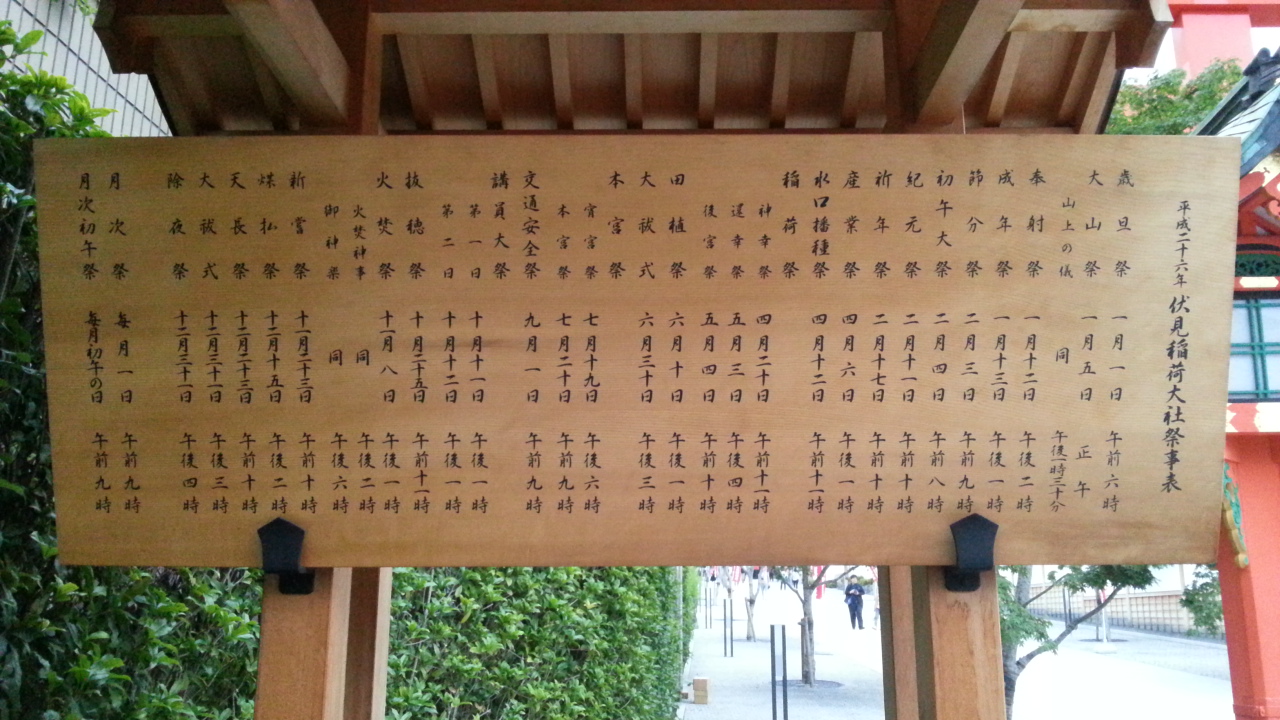 平成二十六年 伏見稲荷大社祭事表
歳旦祭 一月一日 午前六時
大山祭 一月五日 正午
山上の儀 同 午後一時三十分
奉射祭 一月十二日 午後二時
成年祭 一月十三日 午後一時
節分祭 二月三日 午前九時
初午大祭 二月四日 午前八時
紀元祭 二月十一日 午前十時
祈年祭 二月十七日 午前十時
産業祭 四月六日 午後一時
水口播種祭 四月十二日 午前十一時
稲荷祭
神幸祭 四月二十日 午前十一時
還幸祭 五月三日 午後四時
後宮祭 五月四日 午前十時
田植祭 六月十日 午後一時
大祓式 六月三十日 午後三時
本宮祭
宵宮祭 七月十九日 午後六時
本宮祭 七月二十日 午前九時
交通安全祭 九月一日 午前九時
講員大祭
第一日 十月十一日 午後一時
第二日 十月十二日 午後一時
抜穂祭 十月二十五日 午前十一時
火焚祭 十一月八日 午後一時
火焚神事 同 午後二時
御神楽 同 午後六時
新嘗祭 十一月二十三日 午前十時
煤払祭 十二月十五日 午後二時
天長祭 十二月二十三日 午前十時
大祓式 十二月三十一日 午後三時
除夜祭 十二月三十一日 午後四時
月次祭 毎月一日 午前九時
月次初午祭 毎月初午の日 午前九時